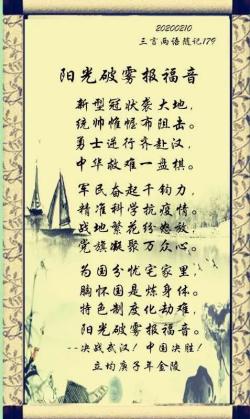 20200210
三言两语随记179
阳光破雾报福音
新型冠状袭大地，
统帅帷幄布阻击。
勇士逆行齐赴汉，
中华救难一盘棋。
军民奋起千钧力，
精准科学抗疫情。
战地繁花纷怒放，
党旗凝聚万众心。
为国分忧宅家里，
胸怀国是炼身体。
特色制度化劫难，
阳光破雾报福音。
--决战武汉！中国决胜！
立均庚子年金陵